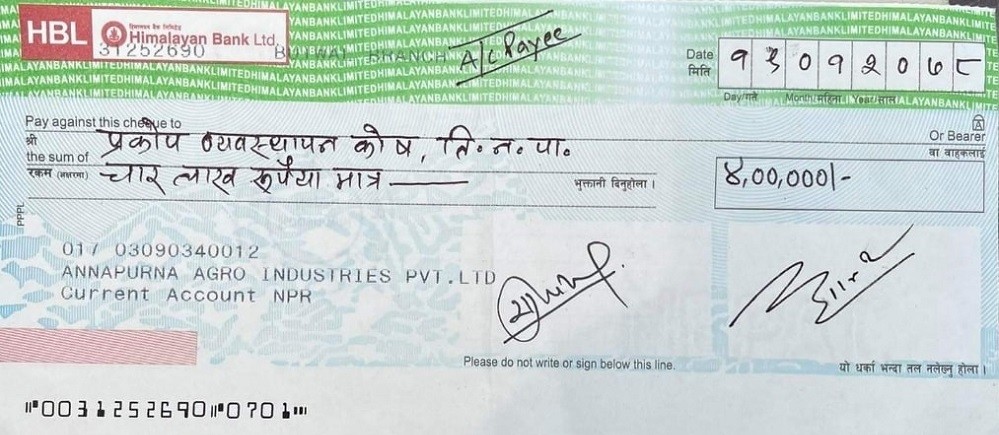 HBL हिमालयन बैंक लिमिटेड
Himalayan Bank Ltd.
31252690 BUTWAL BRANCH A/C Payee
Date मिति १३०१२०७८
Day/गते Month/महिना Year/साल
Pay against this cheque to
श्री प्रकोप व्यवस्थापन कोष, ति.न.पा.
Or Bearer
वा वाहकलाई
the sum of
रकम (अक्षरमा) चार लाख रूपैया मात्र
भुक्तानी दिनुहोला ।
४,00,000/-
PPPL
017 03090340012
ANNAPURNA AGRO INDUSTRIES PVT.LTD
Current Account NPR
Please do not write or sign below this line.
यो धर्का भन्दा तल नलेख्नु होला ।
⑈0031252690⑈0701⑈